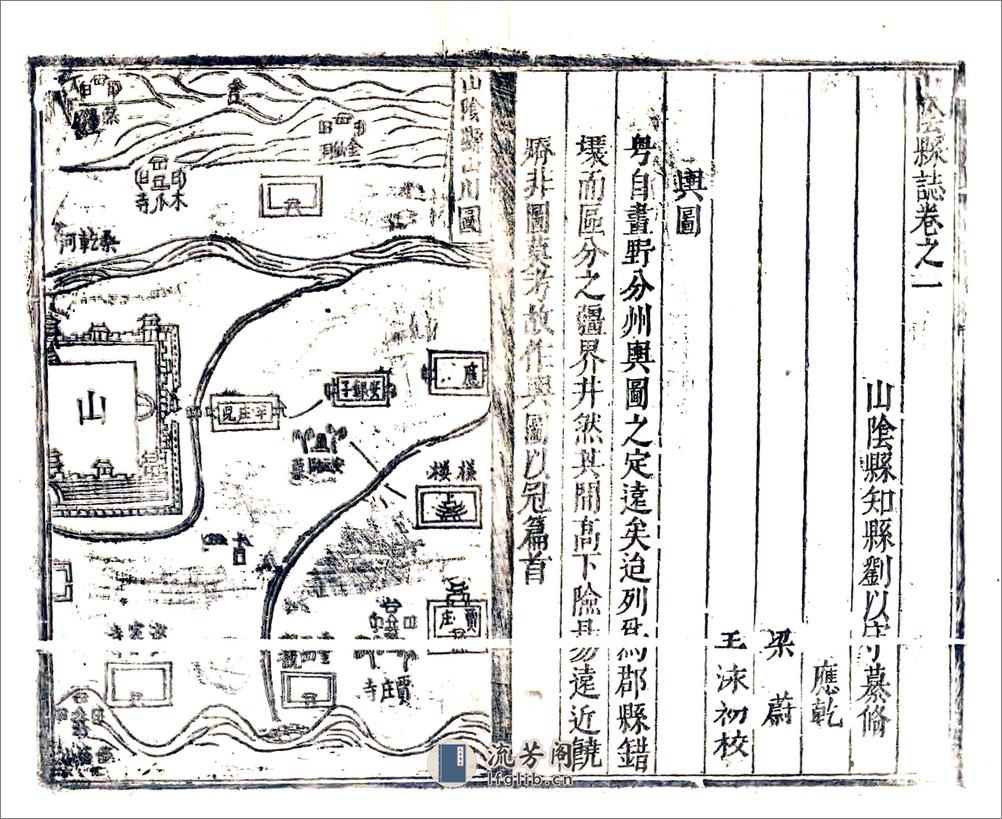 山陰縣誌卷之一
山陰縣知縣劉以守纂脩
應乾
梁蔚
王泳初校
輿圖
粤自畫野分州輿圖之定遠矣迨列爲郡縣錯
壤而區分之疆界井然其間高下險易遠近饒
瘠非圖莫考故作輿圖以冠篇首
山陰縣山川圖
桑乾河
山
辛庄兒
安銀子
應
樣樓
賈庄
賈庄寺
流芳阁
lfglib.cn